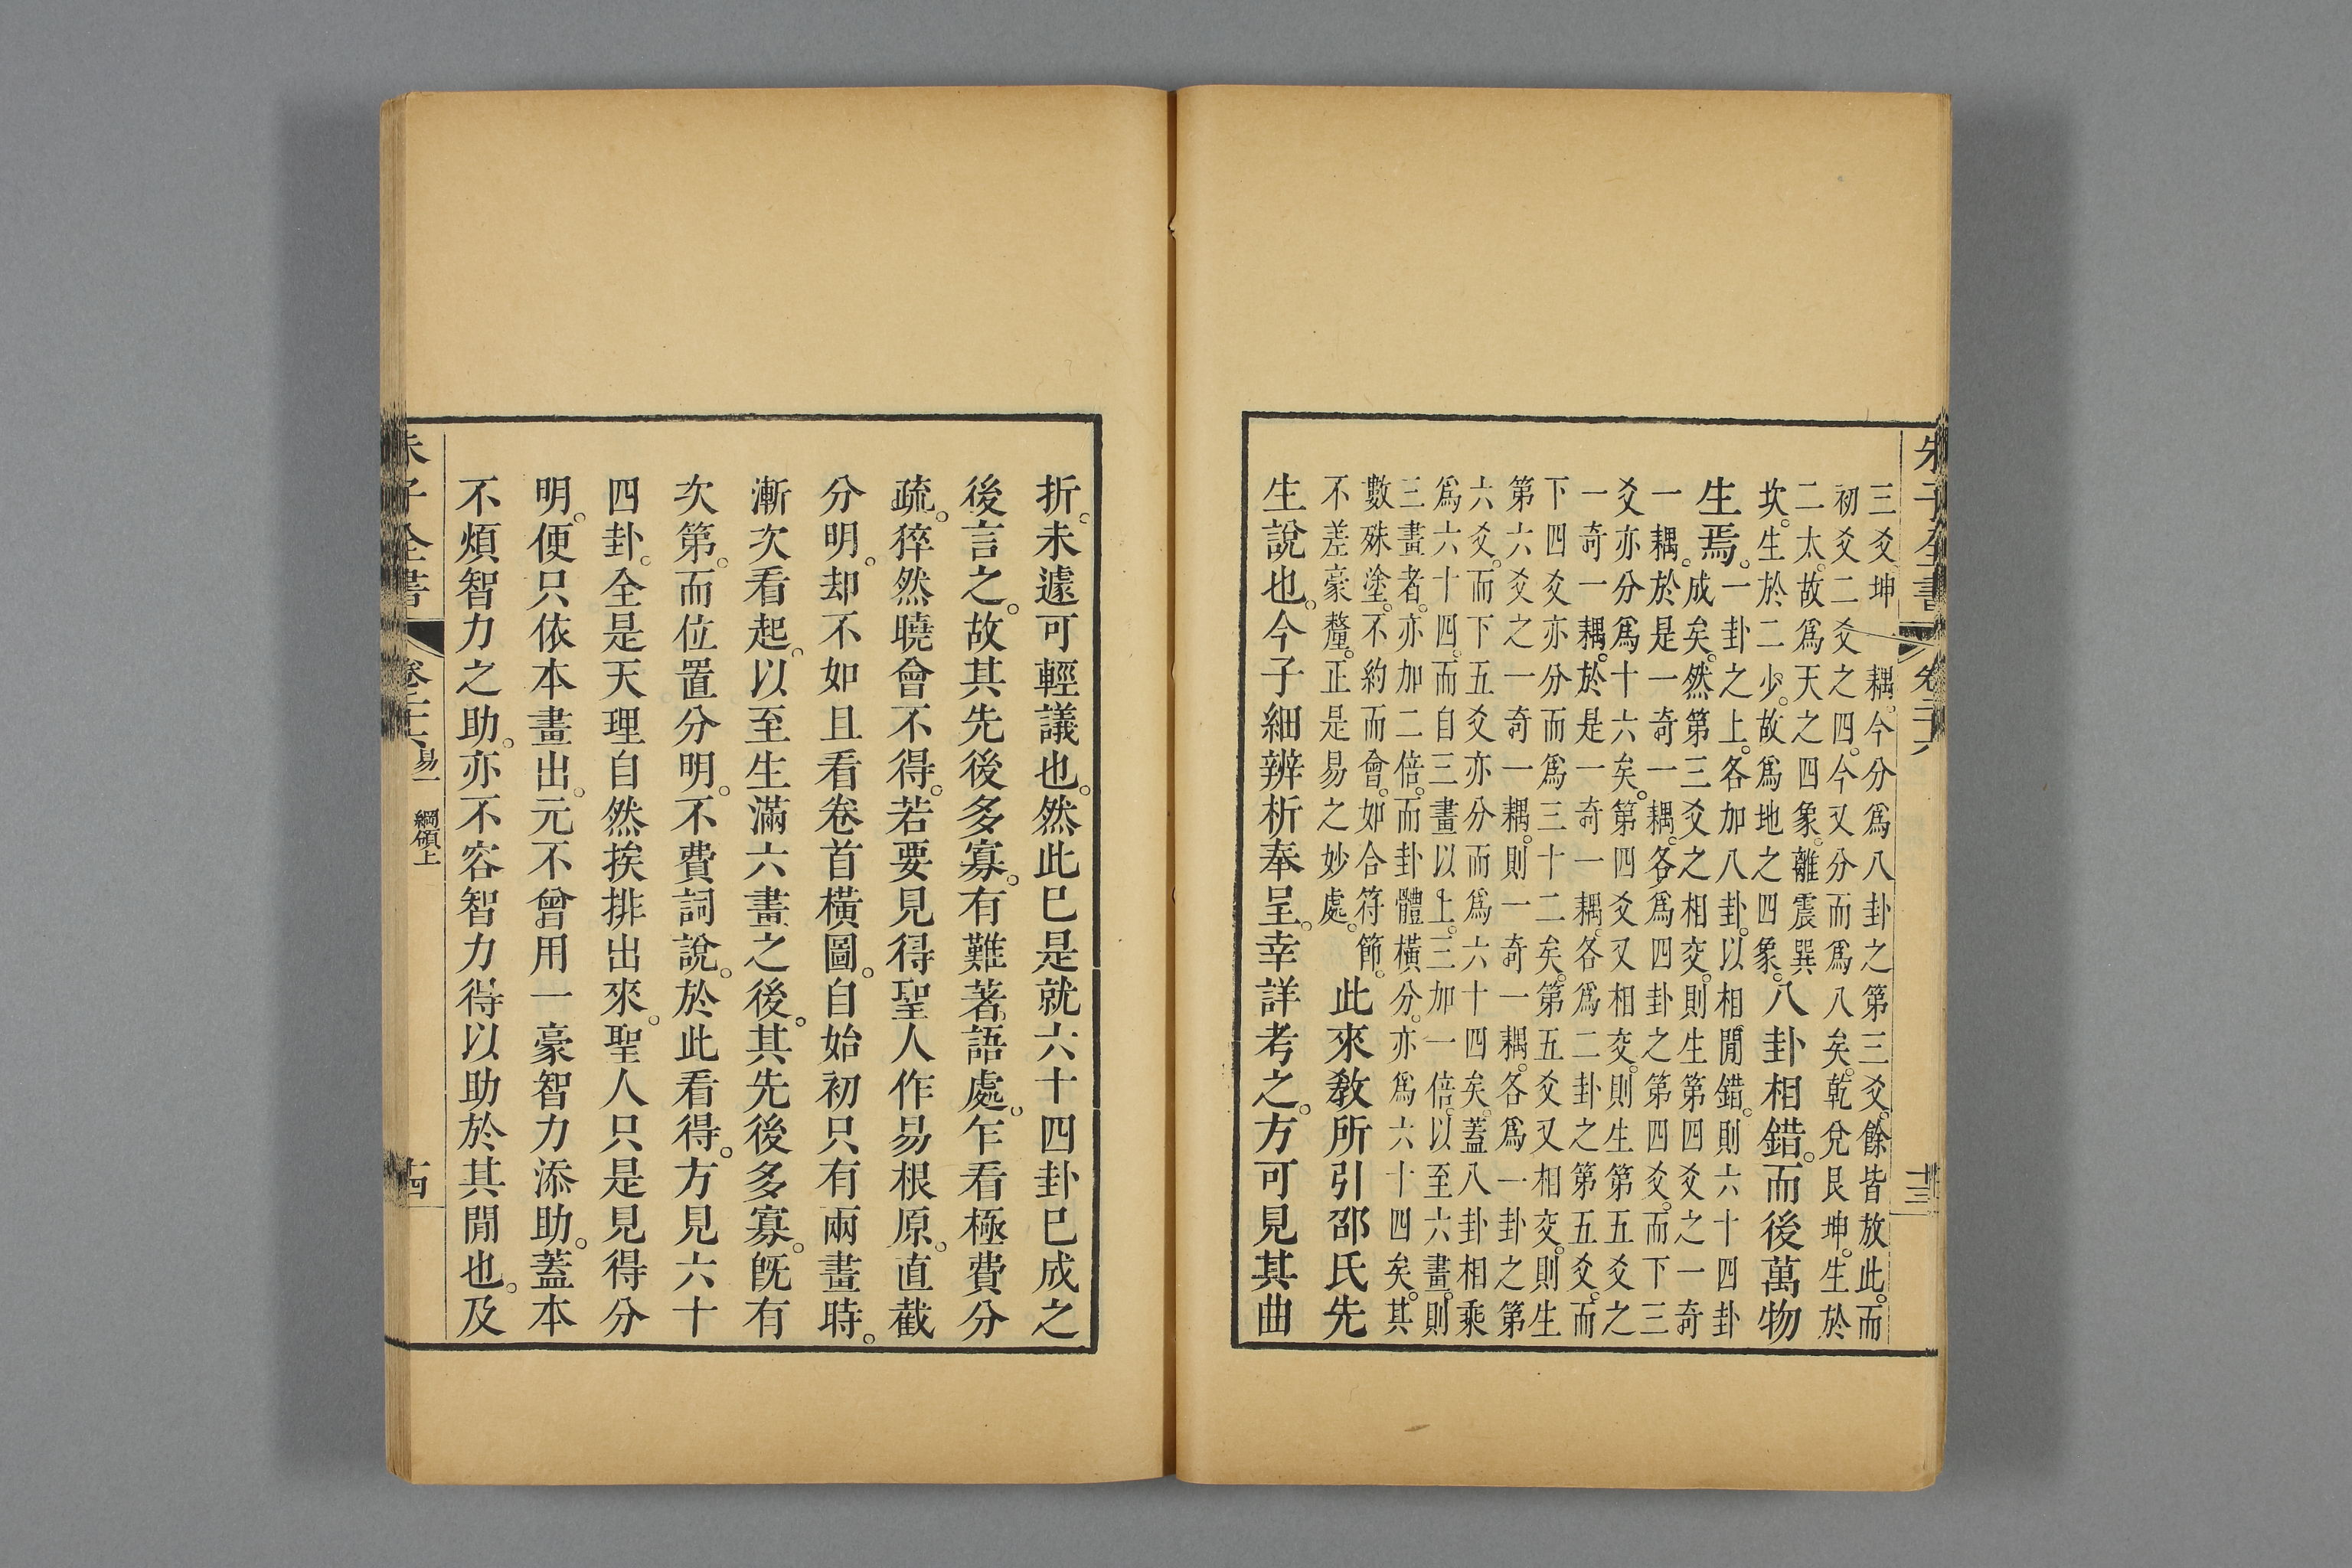 朱子全書 卷二十六 十三
三爻坤 耦。今分爲八卦之第三爻。餘皆放此。而
初爻二爻之四。今又分而爲八矣。乾兌艮坤。生於
二太。故爲天之四象。離震巽
坎。生於二少。故爲地之四象。八卦相錯。而後萬物
生焉。一卦之上。各加八卦。以相閒錯。則六十四卦
成矣。然第三爻之相交。則生第四爻之一奇
一耦。於是一奇一耦。各爲四卦之第四爻。而下三
爻亦分爲十六矣。第四爻又相交。則生第五爻之
一奇一耦。於是一奇一耦。各爲二卦之第五爻。而
下四爻亦分而爲三十二矣。第五爻又相交。則生
第六爻之一奇一耦。則一奇一耦。各爲一卦之第
六爻。而下五爻亦分而爲六十四矣。蓋八卦相乘
爲六十四。而自三畫以上。三加一倍。以至六畫。則
三畫者。亦加二倍。而卦體橫分。亦爲六十四矣。其
數殊塗。不約而會。如合符節。
不差豪釐。正是易之妙處。此來敎所引邵氏先
生說也。今子細辨析奉呈。幸詳考之。方可見其曲
折。未遽可輕議也。然此已是就六十四卦已成之
後言之。故其先後多寡。有難著語處。乍看極費分
疏。猝然曉會不得。若要見得聖人作易根原。直截
分明。却不如且看卷首橫圖。自始初只有兩畫時。
漸次看起。以至生滿六畫之後。其先後多寡。旣有
次第。而位置分明。不費詞說。於此看得。方見六十
四卦。全是天理自然挨排出來。聖人只是見得分
明。便只依本畫出。元不曾用一豪智力添助。蓋本
不煩智力之助。亦不容智力得以助於其閒也。及
朱子全書 卷二十六 易一 綱領上 十四